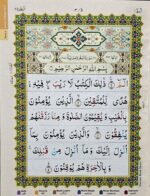 بِسْمِ اللّٰهِ الرَّحْمٰنِ الرَّحِيْمِ
الٓمّٓ ذٰلِكَ الْكِتٰبُ لَا رَيْبَ فِيْهِ
هُدًى لِّلْمُتَّقِيْنَ الَّذِيْنَ يُؤْمِنُوْنَ
بِالْغَيْبِ وَيُقِيْمُوْنَ الصَّلٰوةَ وَمِمَّا رَزَقْنٰهُمْ
يُنْفِقُوْنَ وَالَّذِيْنَ يُؤْمِنُوْنَ بِمَآ
اُنْزِلَ اِلَيْكَ وَمَآ اُنْزِلَ مِنْ قَبْلِكَ
وَبِالْاٰخِرَةِ هُمْ يُوْقِنُوْنَ